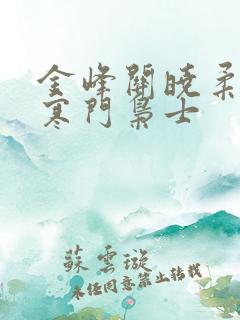 金峰關曉柔
寒門梟士
蘇雲璇
未經同意禁止轉載